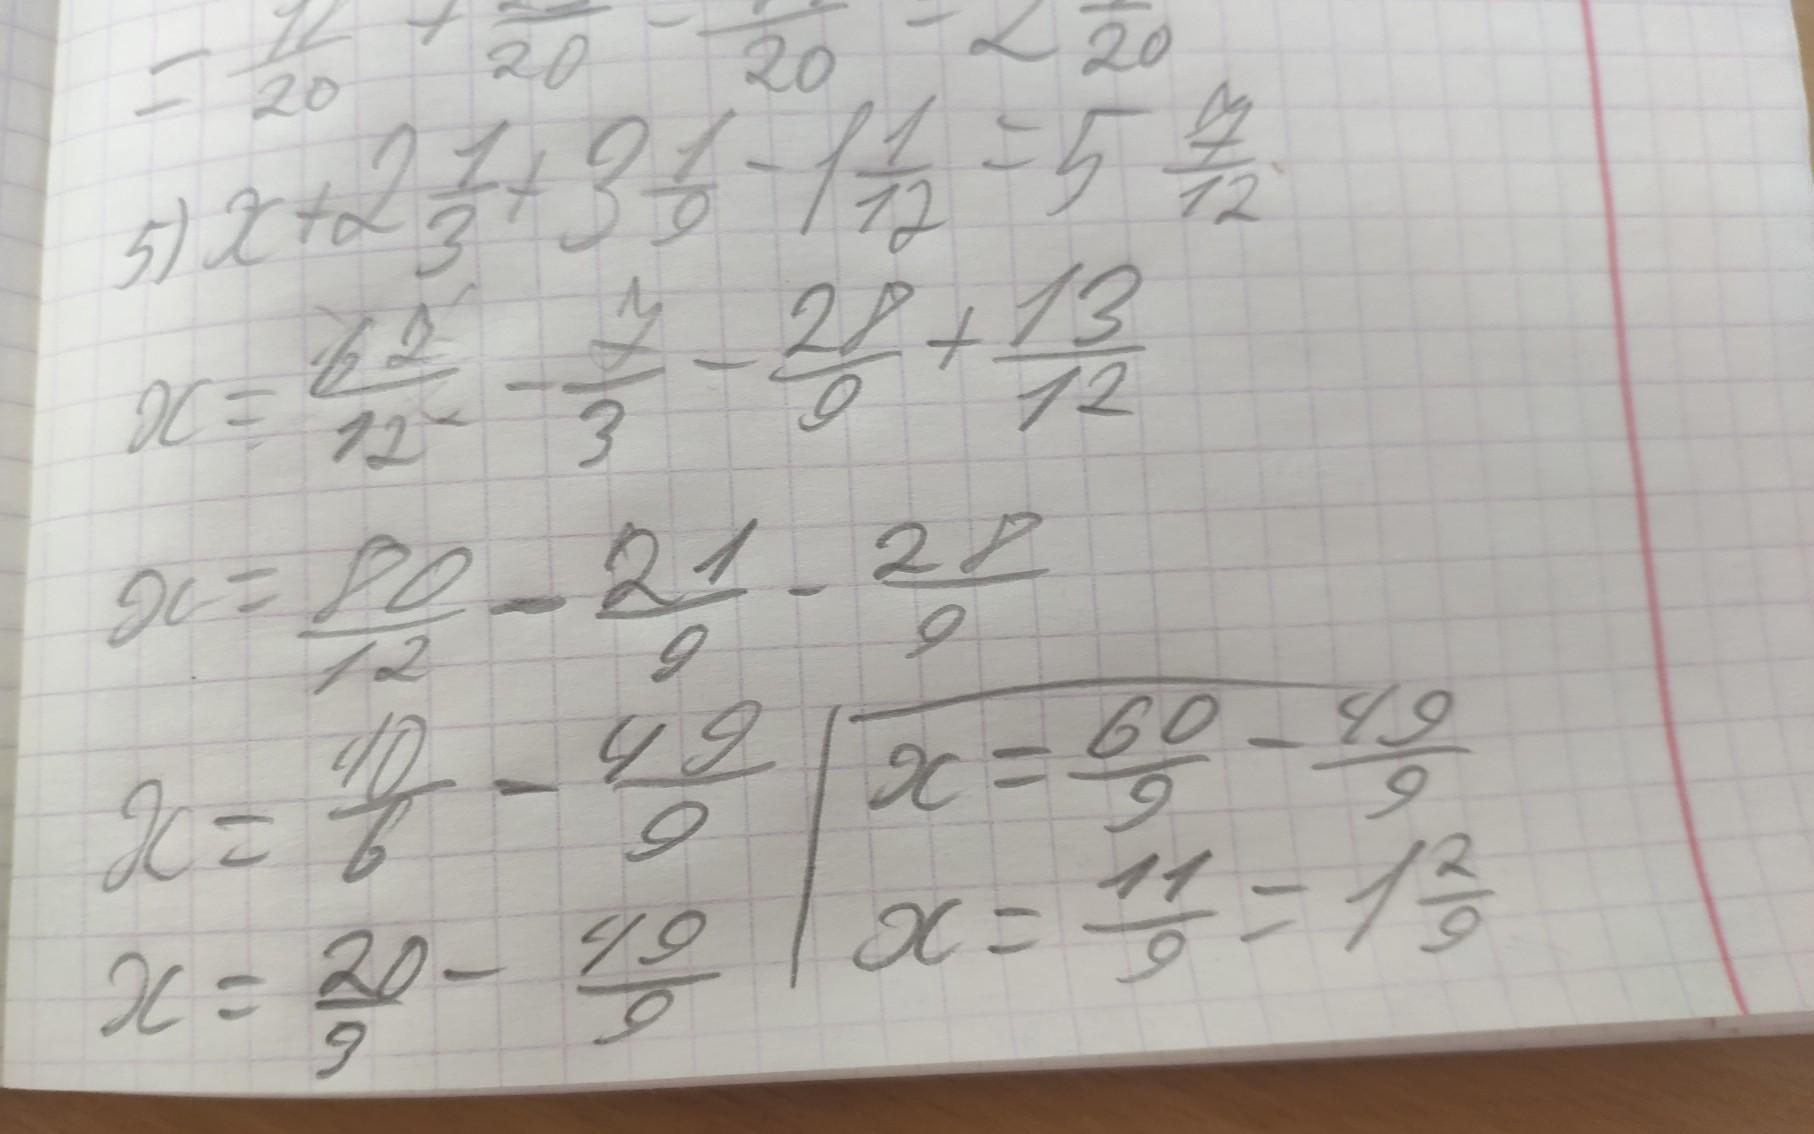 = 20 + 20 - 20 = 2 20
5) x + 2 1/3 + 3 1/9 - 1 1/12 = 5 7/12
x = 67/12 - 7/3 - 28/9 + 13/12
x = 80/12 - 21/9 - 28/9
x = 40/6 - 49/9
x = 20/3 - 49/9
x = 60/9 - 49/9
x = 11/9 = 1 2/9